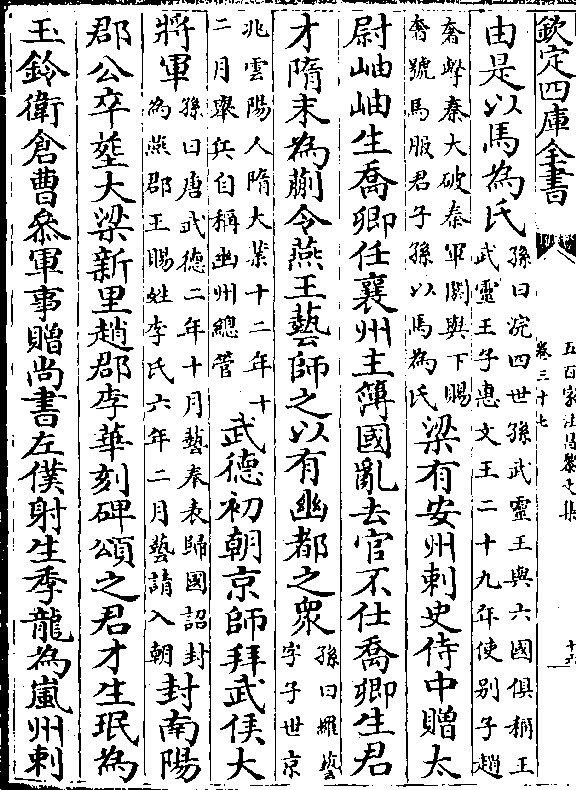 欽定四庫全書
五百家注昌黎文集
卷三十七
由是以馬為氏
孫曰浣四世孫武靈王與六國俱稱王
武靈王子惠文王二十九年使别子趙
奢擊秦大破秦軍閼與下賜
奢號馬服君子孫以馬為氏
梁有安州刺史侍中贈太
尉岫岫生喬卿任襄州主簿國亂去官不仕喬卿生君
才隋末為蒯令燕王藝師之以有幽都之衆
孫曰羅藝
字子世京
兆雲陽人隋大業十二年十
二月舉兵自稱幽州總管
武德初朝京師拜武侯大
將軍
孫曰唐武德二年十月藝奉表歸國詔封
為燕郡王賜姓李氏六年二月藝請入朝
封南陽
郡公卒塟大梁新里趙郡李華刻碑頌之君才生珉為
玉鈐衛倉曹叅軍事贈尚書左僕射生季龍為嵐州刺